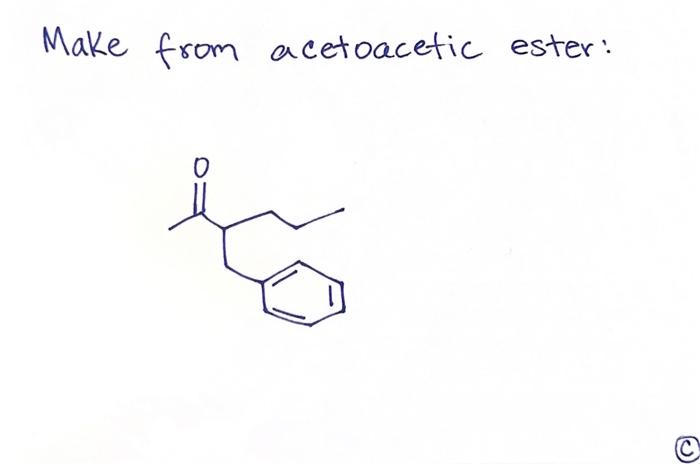 Make from acetoacetic ester:
O
©